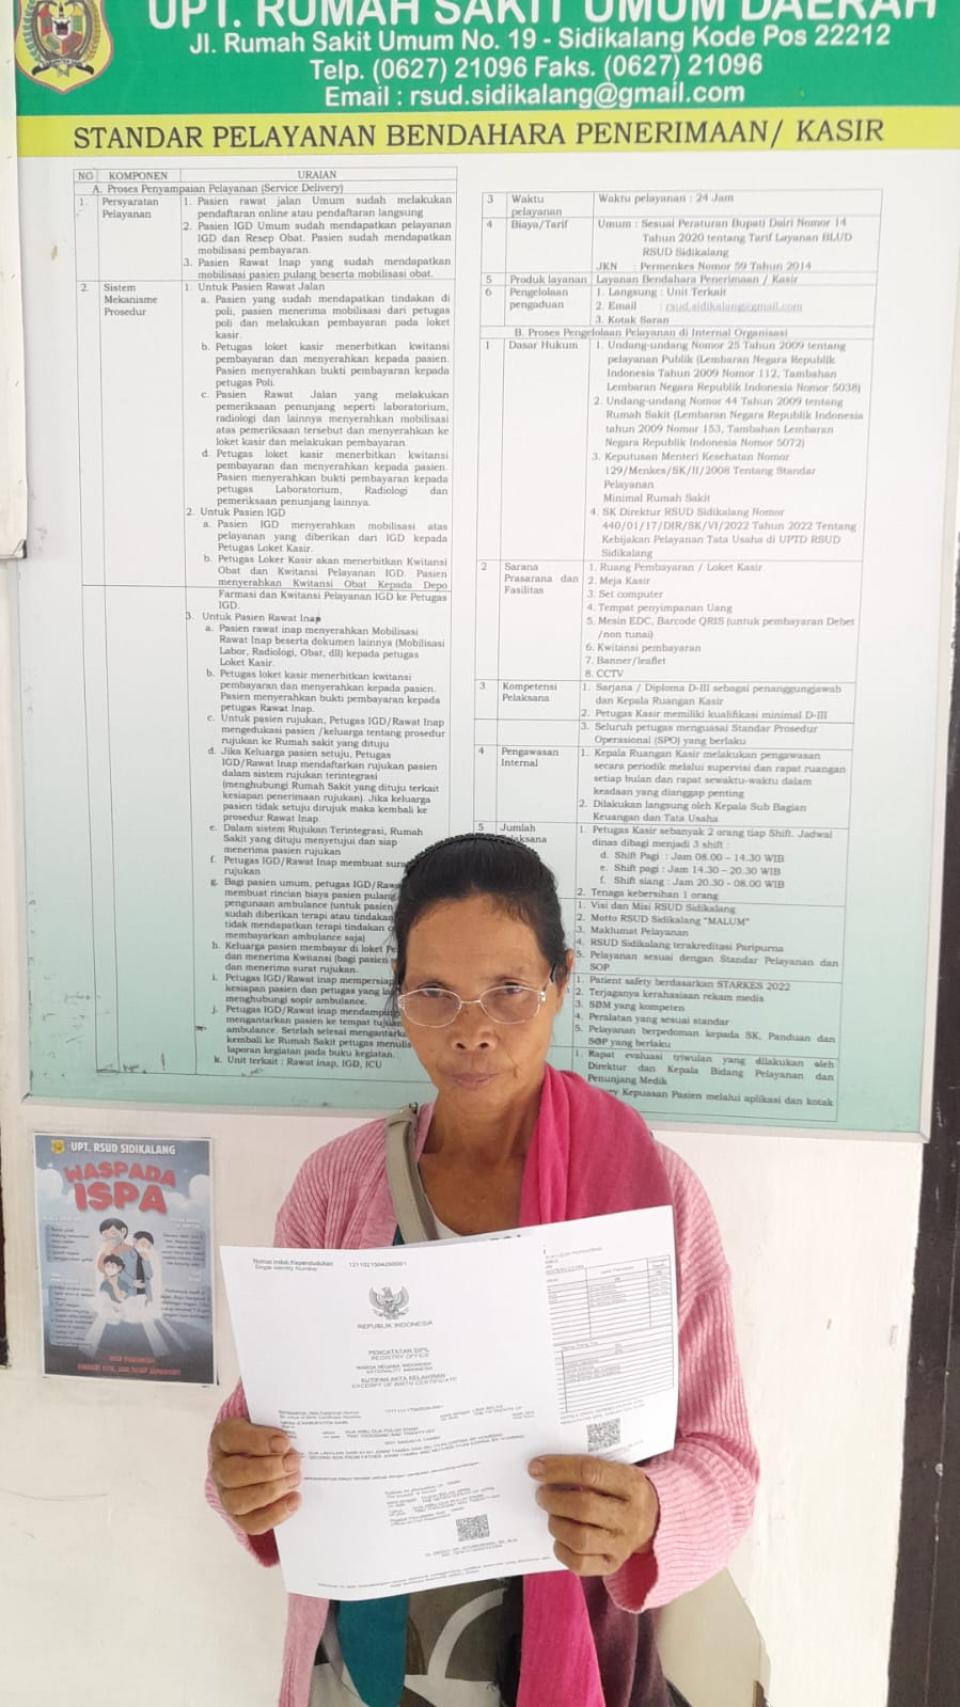 UPT. RUMAH SAKIT UMUM DAERAH
Jl. Rumah Sakit Umum No. 19 - Sidikalang Kode Pos 22212
Telp. (0627) 21096 Faks. (0627) 21096
Email : rsud.sidikalang@gmail.com
STANDAR PELAYANAN BENDAHARA PENERIMAAN/ KASIR
NO KOMPONEN URAIAN
A. Proses Penyampaian Pelayanan (Service Delivery)
1. Persyaratan Pelayanan
1. Pasien rawat jalan Umum sudah melakukan
pendaftaran online atau pendaftaran langsung
2. Pasien IGD Umum sudah mendapatkan pelayanan
IGD dan Resep Obat. Pasien sudah mendapatkan
mobilisasi pembayaran.
3. Pasien Rawat Inap yang sudah mendapatkan
mobilisasi pasien pulang beserta mobilisasi obat.
2. Sistem
Mekanisme
Prosedur
1. Untuk Pasien Rawat Jalan
a. Pasien yang sudah mendapatkan tindakan di
poli, pasien menerima mobilisasi dari petugas
poli dan melakukan pembayaran pada loket
kasir.
b. Petugas loket kasir menerbitkan kwitansi
pembayaran dan menyerahkan kepada pasien.
Pasien menyerahkan bukti pembayaran kepada
petugas Poli.
c. Pasien Rawat Jalan yang melakukan
pemeriksaan penunjang seperti laboratorium,
radiologi dan lainnya menyerahkan mobilisasi
atas pemeriksaan tersebut dan menyerahkan ke
loket kasir dan melakukan pembayaran.
d. Petugas loket kasir menerbitkan kwitansi
pembayaran dan menyerahkan kepada pasien.
Pasien menyerahkan bukti pembayaran kepada
petugas Laboratorium, Radiologi dan
pemeriksaan penunjang lainnya.
2. Untuk Pasien IGD
a. Pasien IGD menyerahkan mobilisasi atas
pelayanan yang diberikan dari IGD kepada
Petugas Loket Kasir.
b. Petugas Loker Kasir akan menerbitkan Kwitansi
Obat dan Kwitansi Pelayanan IGD. Pasien
menyerahkan Kwitansi Obat Kepada Depo
Farmasi dan Kwitansi Pelayanan IGD ke Petugas
IGD.
3. Untuk Pasien Rawat Inap
a. Pasien rawat inap menyerahkan Mobilisasi
Rawat Inap beserta dokumen lainnya (Mobilisasi
Labor, Radiologi, Obat, dll) kepada petugas
Loket Kasir.
b. Petugas loket kasir menerbitkan kwitansi
pembayaran dan menyerahkan kepada pasien.
Pasien menyerahkan bukti pembayaran kepada
petugas Rawat Inap.
c. Untuk pasien rujukan, Petugas IGD/Rawat Inap
mengedukasi pasien /keluarga tentang prosedur
rujukan ke Rumah sakit yang dituju
d. Jika Keluarga pasien setuju, Petugas
IGD/Rawat Inap mendaftarkan rujukan pasien
dalam sistem rujukan terintegrasi
(menghubungi Rumah Sakit yang dituju terkait
kesiapan penerimaan rujukan). Jika keluarga
pasien tidak setuju dirujuk maka kembali ke
prosedur Rawat Inap.
e. Dalam sistem Rujukan Terintegrasi, Rumah
Sakit yang dituju menyetujui dan siap
menerima pasien rujukan
f. Petugas IGD/Rawat Inap membuat
rujukan
g. Bagi pasien umum, petugas
membuat rincian biaya pasien
pengunaan ambulance (untuk pasien
sudah diberikan terapi atau
tidak mendapatkan terapi
membayarkan ambulance saja)
h. Keluarga pasien membayar di loket
dan menerima Kwitansi (bagi pasien
dan menerima surat rujukan.
i. Petugas IGD/Rawat inap
kesiapan pasien dan petugas yang
menghubungi sopir ambulance.
j. Petugas IGD/Rawat inap
mengantarkan pasien ke tempat
ambulance. Setelah selesai
kembali ke Rumah Sakit petugas
laporan kegiatan pada buku kegiatan.
k. Unit terkait : Rawat inap, IGD, ICU
3 Waktu pelayanan
Waktu pelayanan : 24 Jam
4 Biaya/Tarif
Umum : Sesuai Peraturan Bupati Dairi Nomor 14
Tahun 2020 tentang Tarif Layanan BLUD
RSUD Sidikalang
JKN : Permenkes Nomor 59 Tahun 2014
5 Produk layanan Layanan Bendahara Penerimaan / Kasir
6 Pengelolaan
pengaduan
1. Langsung : Unit Terkait
2. Email : rsud.sidikalang@gmail.com
3. Kotak Saran
B. Proses Pengelolaan Pelayanan di Internal Organisasi
1 Dasar Hukum
1. Undang-undang Nomor 25 Tahun 2009 tentang
pelayanan Publik (Lembaran Negara Republik
Indonesia Tahun 2009 Nomor 112, Tambahan
Lembaran Negara Republik Indonesia Nomor 5038)
2. Undang-undang Nomor 44 Tahun 2009 tentang
Rumah Sakit (Lembaran Negara Republik Indonesia
tahun 2009 Nomor 153, Tambahan Lembaran
Negara Republik Indonesia Nomor 5072)
3. Keputusan Menteri Kesehatan Nomor
129/Menkes/SK/II/2008 Tentang Standar
Pelayanan
Minimal Rumah Sakit
4. SK Direktur RSUD Sidikalang Nomor
440/01/17/DIR/SK/VI/2022 Tahun 2022 Tentang
Kebijakan Pelayanan Tata Usaha di UPTD RSUD
Sidikalang
2 Sarana
Prasarana dan
Fasilitas
1. Ruang Pembayaran / Loket Kasir
2. Meja Kasir
3. Set computer
4. Tempat penyimpanan Uang
5. Mesin EDC, Barcode QRIS (untuk pembayaran Debet
/non tunai)
6. Kwitansi pembayaran
7. Banner/leaflet
8. CCTV
3 Kompetensi
Pelaksana
1. Sarjana / Diploma D-III sebagai penanggungjawab
dan Kepala Ruangan Kasir
2. Petugas Kasir memiliki kualifikasi minimal D-III
3. Seluruh petugas menguasai Standar Prosedur
Operasional (SPO) yang berlaku
4 Pengawasan
Internal
1. Kepala Ruangan Kasir melakukan pengawasan
secara periodik melalui supervisi dan rapat ruangan
setiap bulan dan rapat sewaktu-waktu dalam
keadaan yang dianggap penting
2. Dilakukan langsung oleh Kepala Sub Bagian
Keuangan dan Tata Usaha
5 Jumlah
1. Petugas Kasir sebanyak 2 orang tiap Shift. Jadwal
dinas dibagi menjadi 3 shift :
d. Shift Pagi : Jam 08.00 – 14.30 WIB
e. Shift pagi : Jam 14.30 – 20.30 WIB
f. Shift siang : Jam 20.30 - 08.00 WIB
2. Tenaga kebersihan 1 orang
1. Visi dan Misi RSUD Sidikalang
2. Motto RSUD Sidikalang "MALUM"
3. Maklumat Pelayanan
4. RSUD Sidikalang terakreditasi Paripurna
5. Pelayanan sesuai dengan Standar Pelayanan dan
SOP
1. Patient safety berdasarkan STARKES 2022
2. Terjaganya kerahasiaan rekam medis
3. SDM yang kompeten
4. Peralatan yang sesuai standar
5. Pelayanan berpedoman kepada SK, Panduan dan
SOP yang berlaku
1. Rapat evaluasi triwulan yang dilakukan oleh
Direktur dan Kepala Bidang Pelayanan dan
Penunjang Medik
Kepuasan Pasien melalui aplikasi dan kotak
UPT. RSUD SIDIKALANG
WASPADA
ISPA
Nomor Induk Kependudukan
Single Identity Number
REPUBLIK INDONESIA
PENCATATAN SIPIL
REGISTRY OFFICE
WARGA NEGARA INDONESIA
NATIONALITY INDONESIA
KUTIPAN AKTA KELAHIRAN
EXCERPT OF BIRTH CERTIFICATE